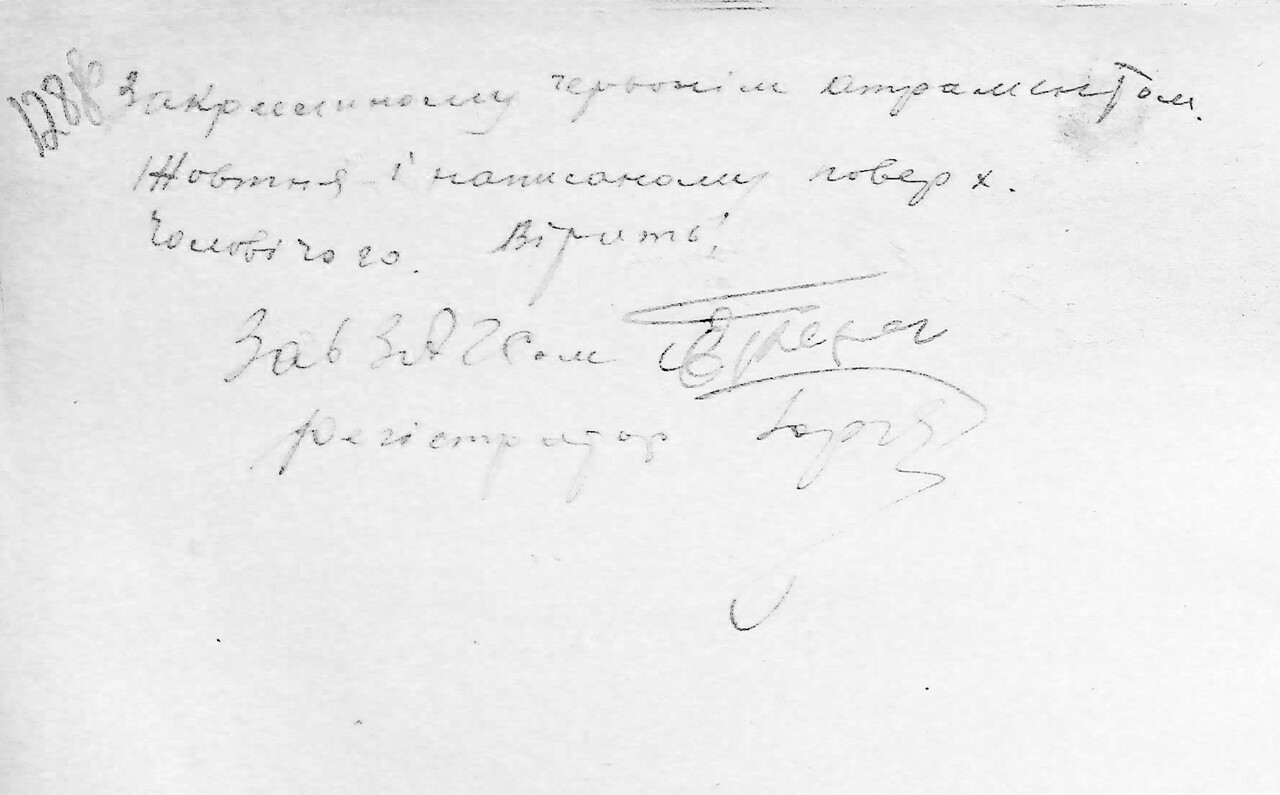 Закресленому червонім атраментом.
Жовтня і написаному поверх.
Чоловічого. Вірить!
Зав ЗАГСом
регістратор